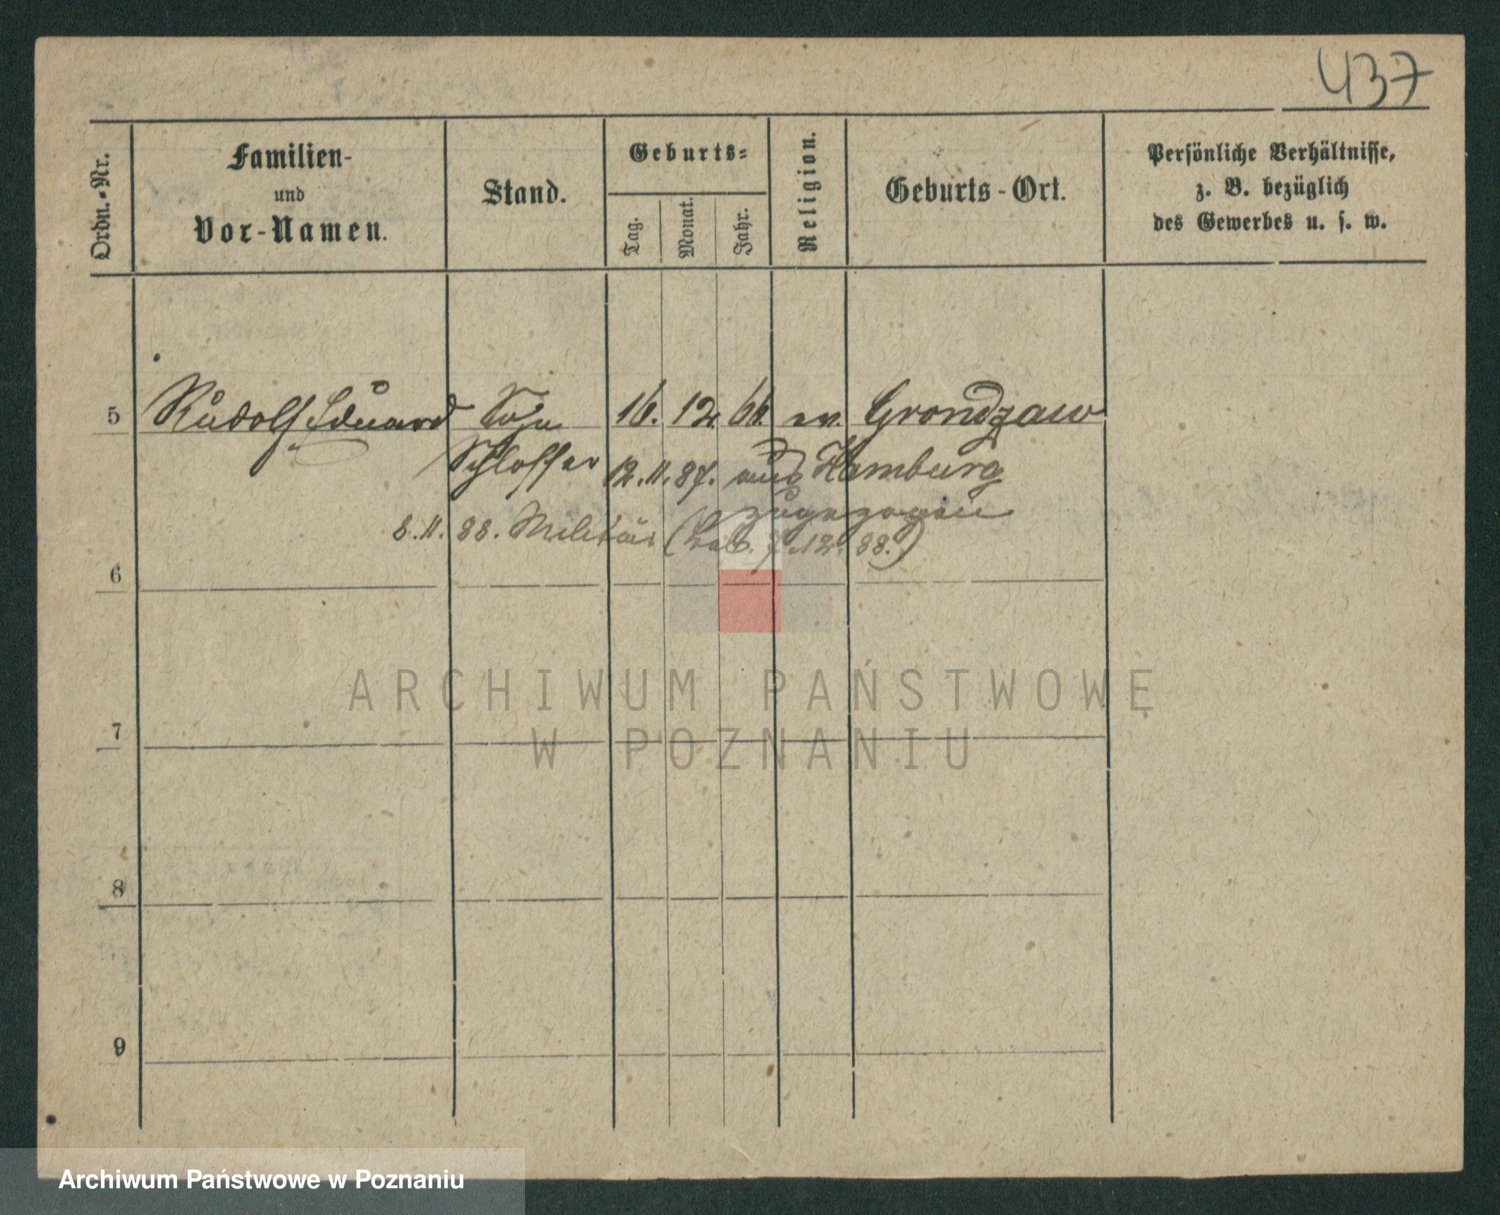 437
Ordn.-Nr.
Familien-
und
Vor-Namen.
Stand.
Geburts-
Tag.
Monat.
Jahr.
Religion.
Geburts-Ort.
Persönliche Verhältnisse,
z. B. bezüglich
des Gewerbes u. s. w.
5 Rudolf Eduard Sohn 16. 12. 66. ev. Grondzaw
Schlosser 12.11.87. aus Hamburg
zugezogen
8.11.88. Militär 12. 88.)
6
7
8
9
ARCHIWUM PAŃSTWOWE
W POZNANIU
Archiwum Państwowe w Poznaniu